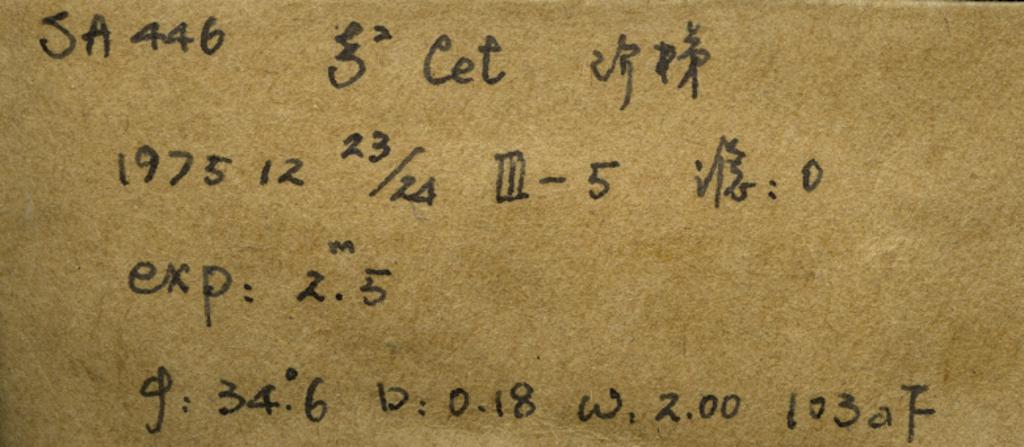 SA 446 ξ² Cet 阶梯
1975 12 23/24 Ⅲ-5 滤: 0
exp: 2.ᵐ5
φ: 34.°6 D: 0.18 ω: 2.00 103aF